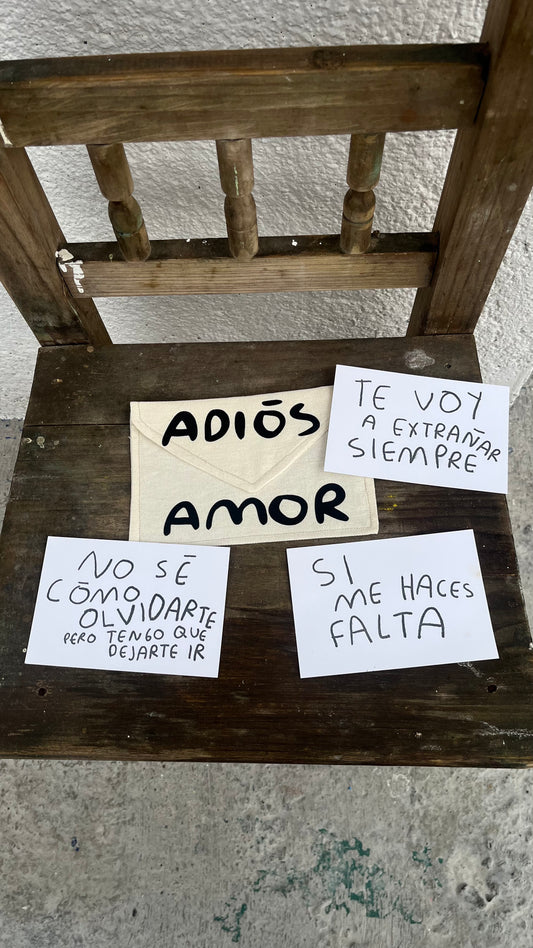 ADIÓS
AMOR
TE VOY
A EXTRAÑAR
SIEMPRE
NO SÉ
CÓMO
OLVIDARTE
PERO TENGO QUE
DEJARTE IR
SI
ME HACES
FALTA